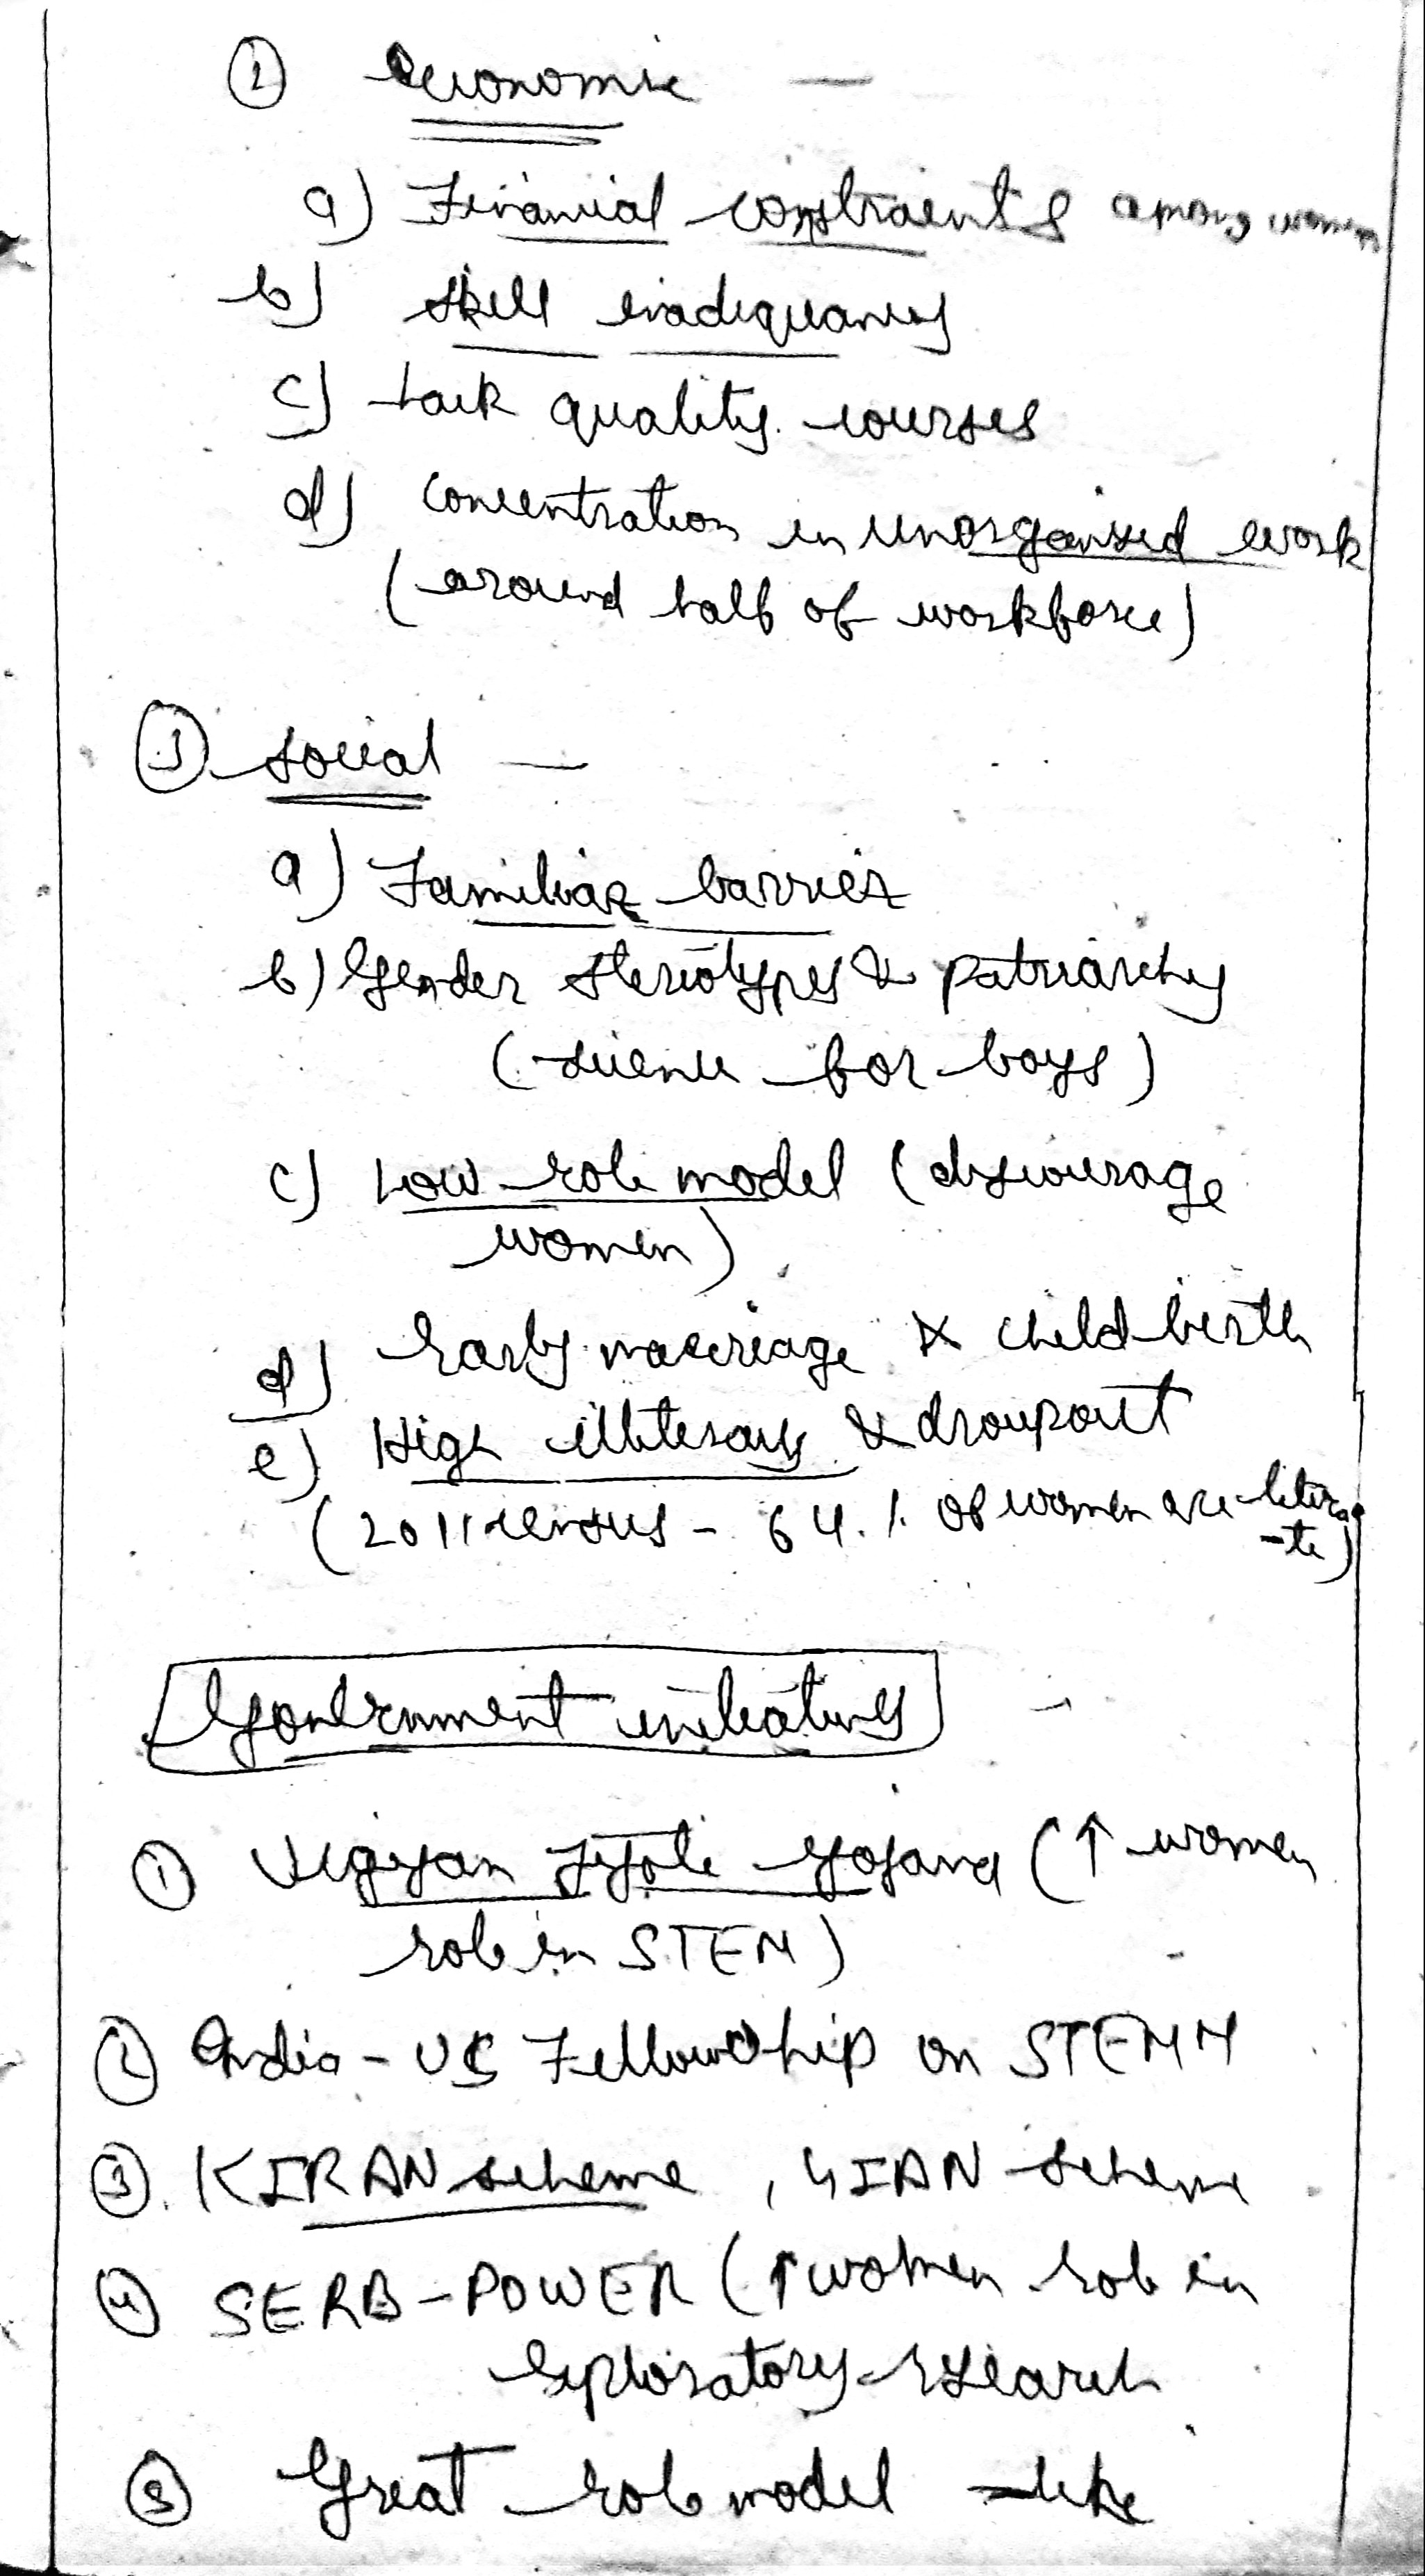 ② Economic —
a) Financial constraints among women
b) Skill inadequancy
c) Lack quality courses
d) Concentration in unorganised work
(around half of workforce)
③ Social —
a) Familiar barrier
b) Gender steriotypes & patriarchy
(Science for boys)
c) Low role model (discourage
women)
d) Early marriage & child birth
e) High illiteracy & droupout
(2011 census - 64% of women are litera
-te)
Government initiatives -
① Vigyan Jyoti Yojana (↑ women
role in STEM)
② India - US Fellowship on STEMM
③. KIRAN scheme, GIAN scheme
④ SERB - POWER (↑ women role in
Exploratory research
⑤ Great role model - like